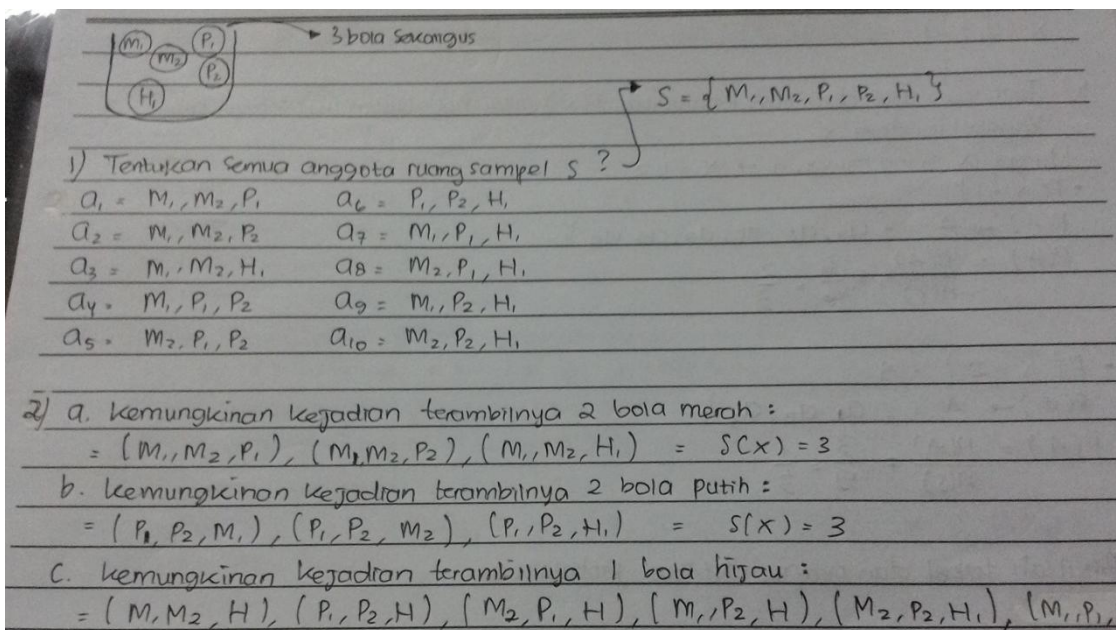 M₁ M₂ P₁ P₂ H₁
3 bola sekangus
S = { M₁, M₂, P₁, P₂, H₁ }
1) Tentukan semua anggota ruang sampel S ?
a₁ = M₁, M₂, P₁ a₆ = P₁, P₂, H₁
a₂ = M₁, M₂, P₂ a₇ = M₁, P₁, H₁
a₃ = M₁, M₂, H₁ a₈ = M₂, P₁, H₁
a₄ = M₁, P₁, P₂ a₉ = M₁, P₂, H₁
a₅ = M₂, P₁, P₂ a₁₀ = M₂, P₂, H₁
2) a. kemungkinan kejadian terambilnya 2 bola merah :
= (M₁, M₂, P₁), (M₁, M₂, P₂), (M₁, M₂, H₁) = S(x) = 3
b. kemungkinan kejadian terambilnya 2 bola putih :
= (P₁, P₂, M₁), (P₁, P₂, M₂), (P₁, P₂, H₁) = S(x) = 3
c. kemungkinan kejadian terambilnya 1 bola hijau :
= (M, M₂, H), (P₁, P₂, H), (M₂, P₁, H), (M₁, P₂, H), (M₂, P₂, H₁), (M₁, P₁,